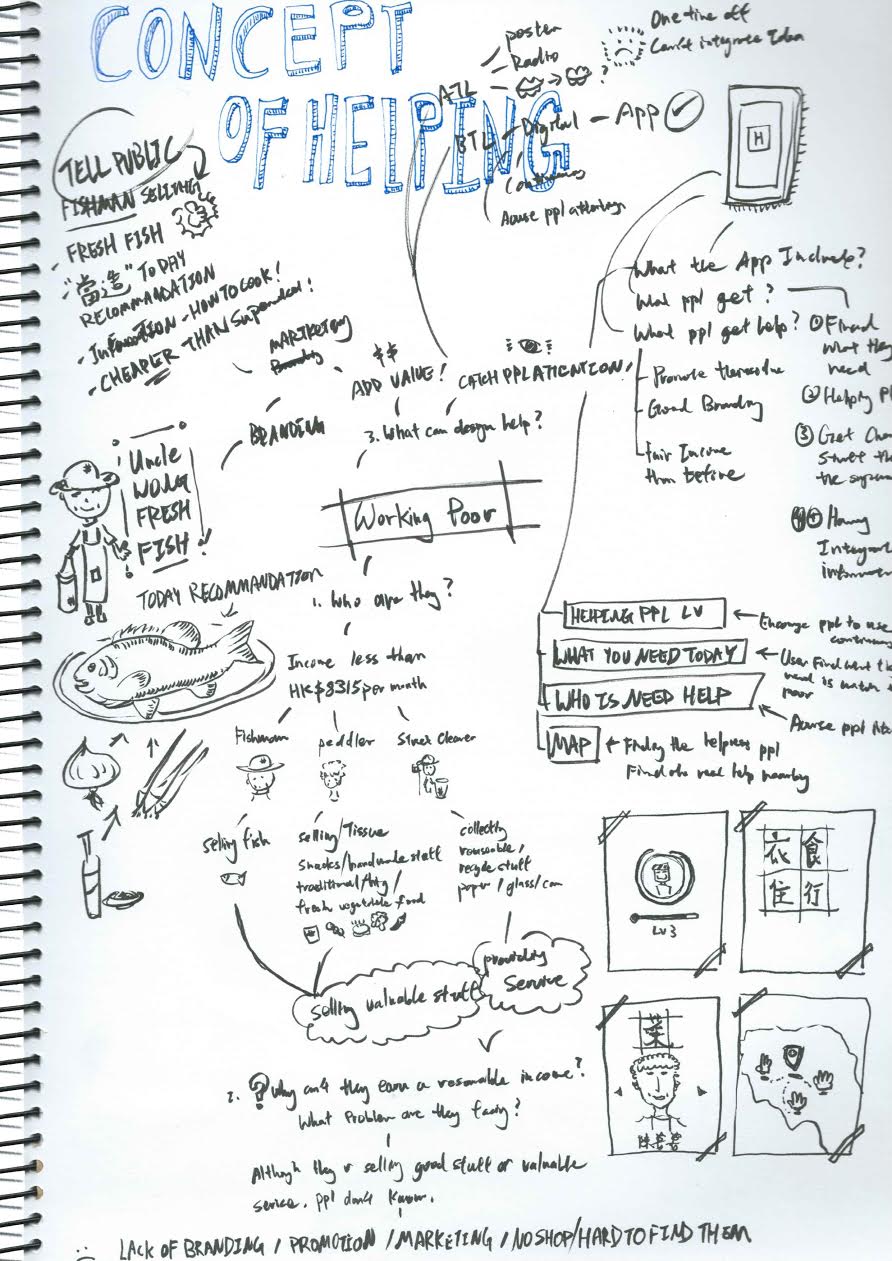 CONCEPT
OF HELPING
ATL
poster
Radio
?
One time off
Can't integrate Idea
BTL - Digital - App
Continuous
ppl attention
H
TELL PUBLIC
FISHMAN SELLING
- FRESH FISH
- "當造" TODAY
RECOMMANDATION
- Information - HOW TO COOK!
- CHEAPER THAN
MARTKETING
Branding
BRANDING
$$
ADD VALUE!
CATCH PPL ATTENTION
3. What can design help?
What the App Include?
What ppl get?
What ppl get help?
- Promote
- Good Branding
- Fair Income
than before
① Find
what they
need
② Helping
③ Get
Stuff
the
④
information
Uncle
WONG
FRESH
FISH!
Working Poor
TODAY RECOMMANDATION
1. Who are they?
Income less than
HK$8315 per month
Fishman
peddler
Street Cleaner
selling fish
selling/Tissue
snacks/handmade stuff
traditional/
fresh vegetable food
collecting
reuseable/
recycle stuff
paper/glass/can
selling valuable stuff
providing
service
HELPING PPL LV
ppl to use
WHAT YOU NEED TODAY
User Find what
need is
poor
WHO IS NEED HELP
ppl
MAP
Finding the helpless ppl
Find the real help nearby
LV3
衣 食
住 行
菜
陳
2. ? Why can't they earn a reasonable income?
What Problem are they facing?
Although they r selling good stuff or valuable
service. ppl don't know.
LACK OF BRANDING / PROMOTION / MARKETING / NO SHOP/HARD TO FIND THEM